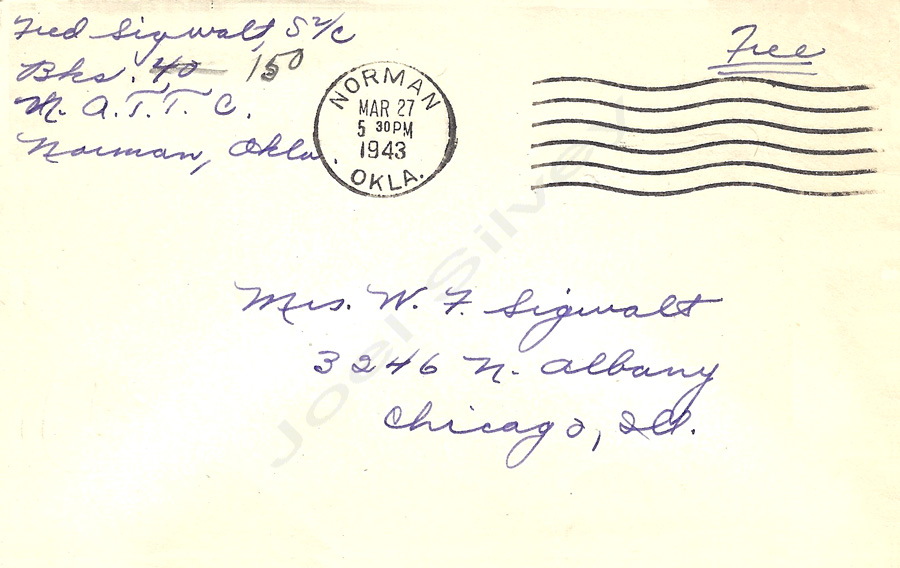 Fred Sigwalt, S2/c
Bks. 40 150
N. A. T. T. C.
Norman, Okla.
NORMAN
MAR 27
5 30PM
1943
OKLA.
Free
Mrs. W. F. Sigwalt
3246 N. Albany
Chicago, Ill.
Joel Silvey